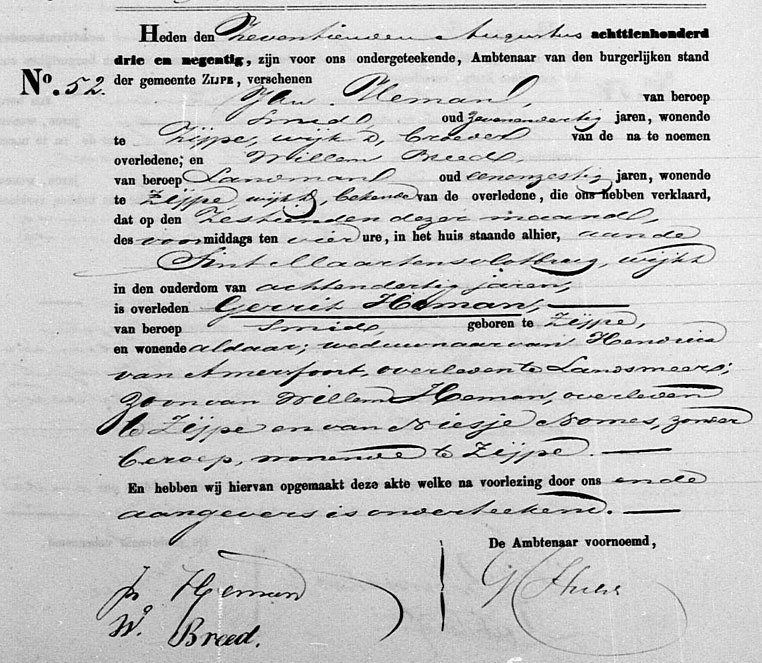 Heden den Zeventienden Augustus achttienhonderd
drie en negentig, zijn voor ons ondergeteekende, Ambtenaar van den burgerlijken stand
No. 52.
der gemeente ZIJPE, verschenen
Jan Heman, van beroep
Smid, oud zevenendertig jaren, wonende
te Zijpe, wijk D, broeder van de na te noemen
overledene; en Willem Breed,
van beroep Landman oud eenenzestig jaren, wonende
te Zijpe wijk D, bekende van de overledene, die ons hebben verklaard,
dat op den Zestienden dezer maand,
des voormiddags ten vier ure, in het huis staande alhier, aan de
Sint Maartensvlotbrug, wijk
in den ouderdom van achtendertig jaren,
is overleden Gerrit Heman,
van beroep Smid, geboren te Zijpe,
en wonende aldaar; weduwnaar van Hendrica
van Amersfoort, overleden te Landsmeer;
zoon van Willem Heman, overleden
te Zijpe en van Niesje Nomes, zonder
beroep, wonende te Zijpe.
En hebben wij hiervan opgemaakt deze akte welke na voorlezing door ons en de
aangevers is onderteekend.
De Ambtenaar voornoemd,
Jn Heman
Wm. Breed.